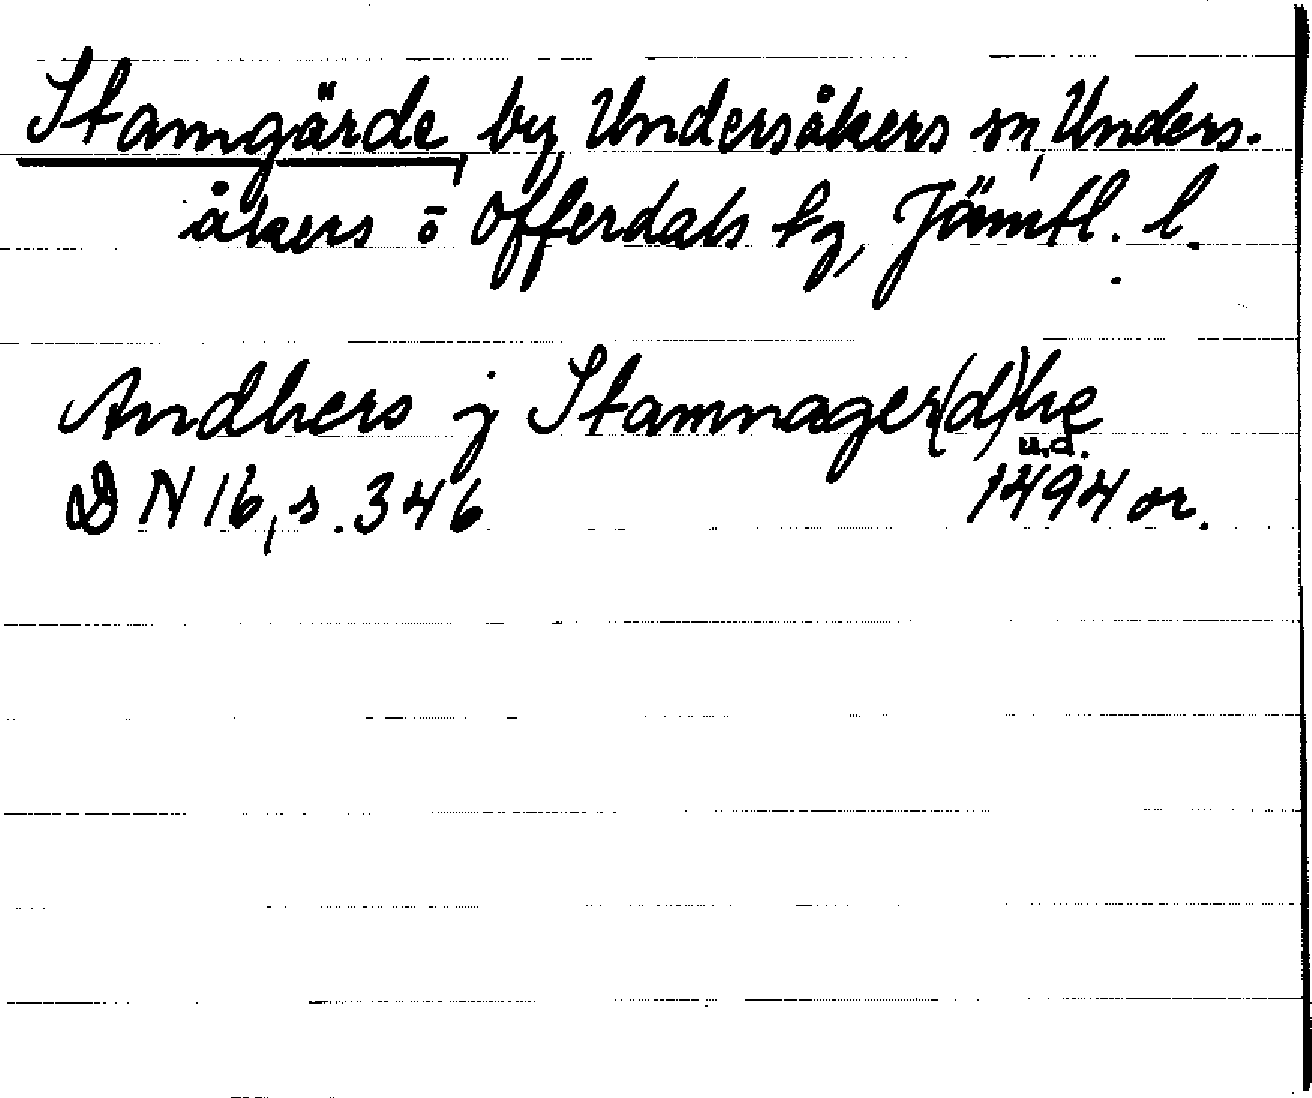 Stamgärde, by Undersåkers sn, Unders-
åkers o Offerdals tg, Jämtl. l.
Andhers j Stamnager(d)he
u.d.
DN 16, s. 346 1494 or.